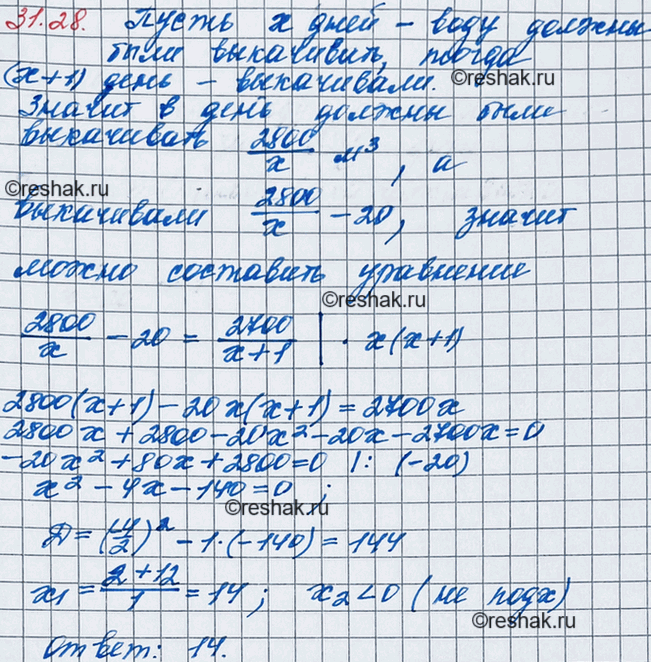 31.28. Пусть x дней – воду должны
были выкачивать, тогда
(x+1) день – выкачивали.
©reshak.ru
Значит в день должны были
выкачивать 2800/x м³, а
©reshak.ru
выкачивали 2800/x – 20, значит
можно составить уравнение
©reshak.ru
2800/x – 20 = 2700/(x+1) | · x(x+1)
2800(x+1) – 20x(x+1) = 2700x
2800x + 2800 – 20x² – 20x – 2700x = 0
–20x² + 80x + 2800 = 0 |: (–20)
x² – 4x – 140 = 0 ;
©reshak.ru
Д = (–4/2)² – 1·(–140) = 144
x₁ = (2+12)/1 = 14 ; x₂ < 0 (не подх)
©reshak.ru
Ответ: 14.